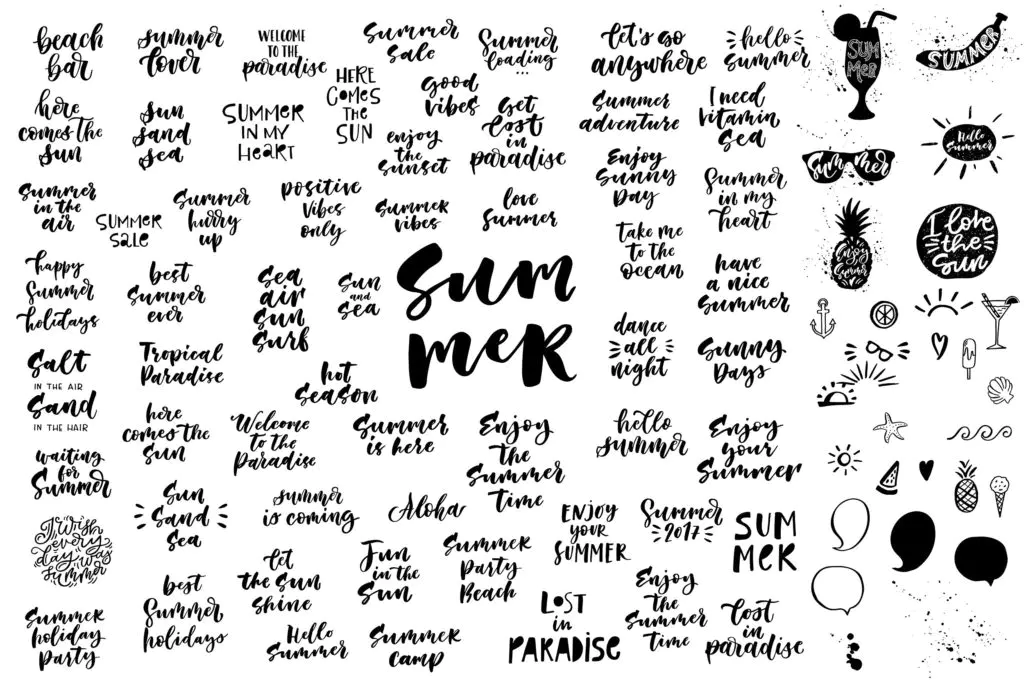 beach
bar
summer
lover
WELCOME
TO THE
paradise
Summer
sale
Summer
loading
...
let's go
anywhere
hello
summer
SUM
MER
SUMMER
here
comes the
sun
sun
sand
sea
SUMMER
IN MY
HEART
HERE
COMES
THE
SUN
good
vibes
enjoy
the
sunset
get
lost
in
paradise
Summer
adventure
I need
vitamin
sea
Hello
Summer
Summer
in the
air
SUMMER
SALE
Summer
hurry
up
positive
vibes
only
Summer
vibes
love
Summer
Enjoy
Sunny
Day
Summer
in my
heart
Summer
I love
the
Sun
Enjoy
Summer
happy
Summer
holidays
best
Summer
ever
sea
air
sun
surf
Sun
and
sea
SUM
MER
Take me
to the
ocean
have
a nice
Summer
Salt
IN THE AIR
Sand
IN THE HAIR
Tropical
Paradise
hot
season
dance
all
night
Sunny
Days
waiting
for
Summer
here
comes the
sun
Welcome
to the
Paradise
Summer
is here
Enjoy
The
Summer
Time
hello
summer
Enjoy
your
Summer
I wish
every
day was
summer
Sun
Sand
Sea
summer
is coming
Aloha
ENJOY
your
SUMMER
Summer
2017
SUM
MER
Summer
holiday
Party
best
Summer
holidays
let
the sun
shine
Hello
Summer
Fun
in the
Sun
Summer
Camp
Summer
Party
Beach
LOST
in
PARADISE
Enjoy
The
Summer
time
lost
in
paradise